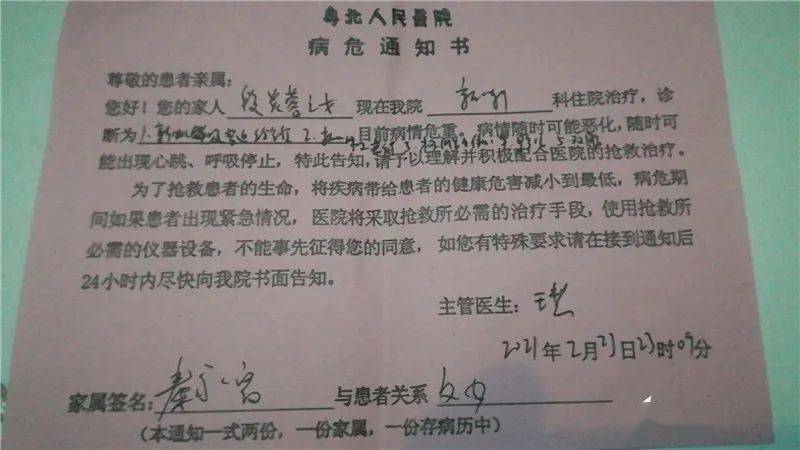 粤北人民医院
病危通知书
尊敬的患者亲属:
您好！您的家人 现在我院 科住院治疗，诊
断为 目前病情危重。病情随时可能恶化，随时可
能出现心跳、呼吸停止，特此告知，请予以理解并积极配合医院的抢救治疗。
为了抢救患者的生命，将疾病带给患者的健康危害减小到最低，病危期
间如果患者出现紧急情况，医院将采取抢救所必需的治疗手段，使用抢救所
必需的仪器设备，不能事先征得您的同意，如您有特殊要求请在接到通知后
24小时内尽快向我院书面告知。
主管医生:
2021年2月23日23时09分
家属签名: 与患者关系 父女
(本通知一式两份，一份家属，一份存病历中)